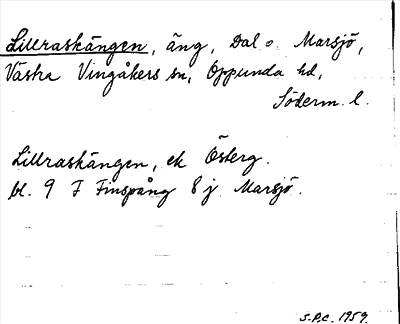 Lillraskängen, äng, Dal o. Marsjö,
Västra Vingåkers sn, Oppunda hd,
Söderm. l.
Lillraskängen, ek Österg.
bl. 9 F Finspång 8 j Marsjö.
S.P.C. 1959.